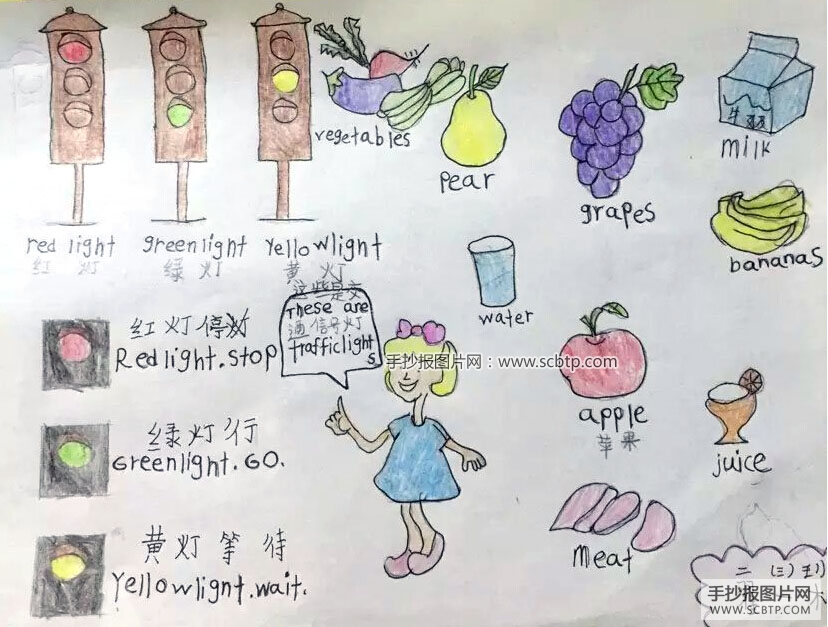 red light
红 灯
greenlight
绿 灯
Yellowlight
黄 灯
vegetables
Pear
grapes
milk
bananas
water
这些是交
These are
通信号灯
Trafficlight
s
手抄报图片网：www.scbtp.com
红灯停
Redlight.stop
绿灯行
Greenlight.GO.
黄灯等待
Yellowlignt.wait.
apple
苹果
juice
Meat
二 (三) 班
手抄报图片网
WWW.SCBTP.COM